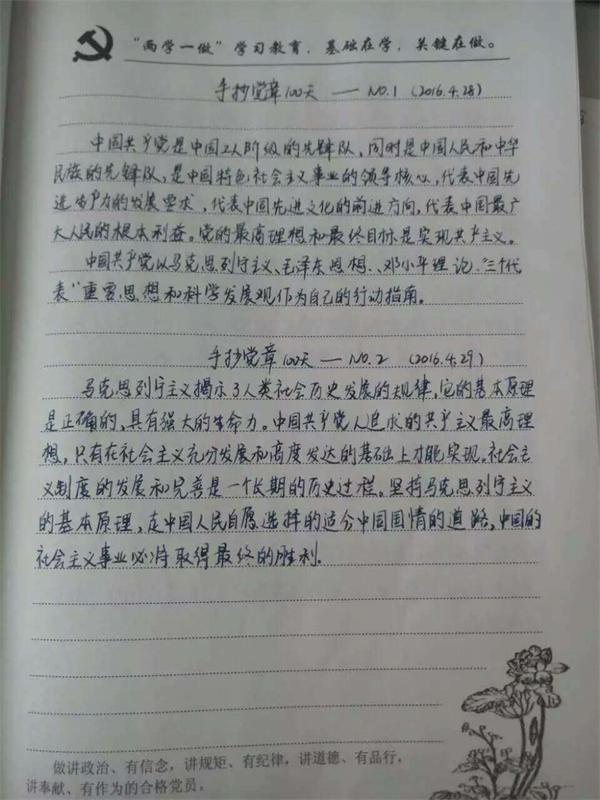 “两学一做”学习教育，基础在学，关键在做。
手抄党章100天 —— NO.1 (2016.4.28)
中国共产党是中国工人阶级的先锋队，同时是中国人民和中华
民族的先锋队，是中国特色社会主义事业的领导核心，代表中国先
进生产力的发展要求，代表中国先进文化的前进方向，代表中国最广
大人民的根本利益。党的最高理想和最终目标是实现共产主义。
中国共产党以马克思列宁主义、毛泽东思想、邓小平理论、“三个代
表”重要思想和科学发展观作为自己的行动指南。
手抄党章100天 —— NO.2 (2016.4.29)
马克思列宁主义揭示了人类社会历史发展的规律，它的基本原理
是正确的，具有强大的生命力。中国共产党人追求的共产主义最高理
想，只有在社会主义充分发展和高度发达的基础上才能实现。社会主
义制度的发展和完善是一个长期的历史过程。坚持马克思列宁主义
的基本原理，走中国人民自愿选择的适合中国国情的道路，中国的
社会主义事业必将取得最终的胜利.
做讲政治、有信念，讲规矩、有纪律，讲道德、有品行，
讲奉献、有作为的合格党员。